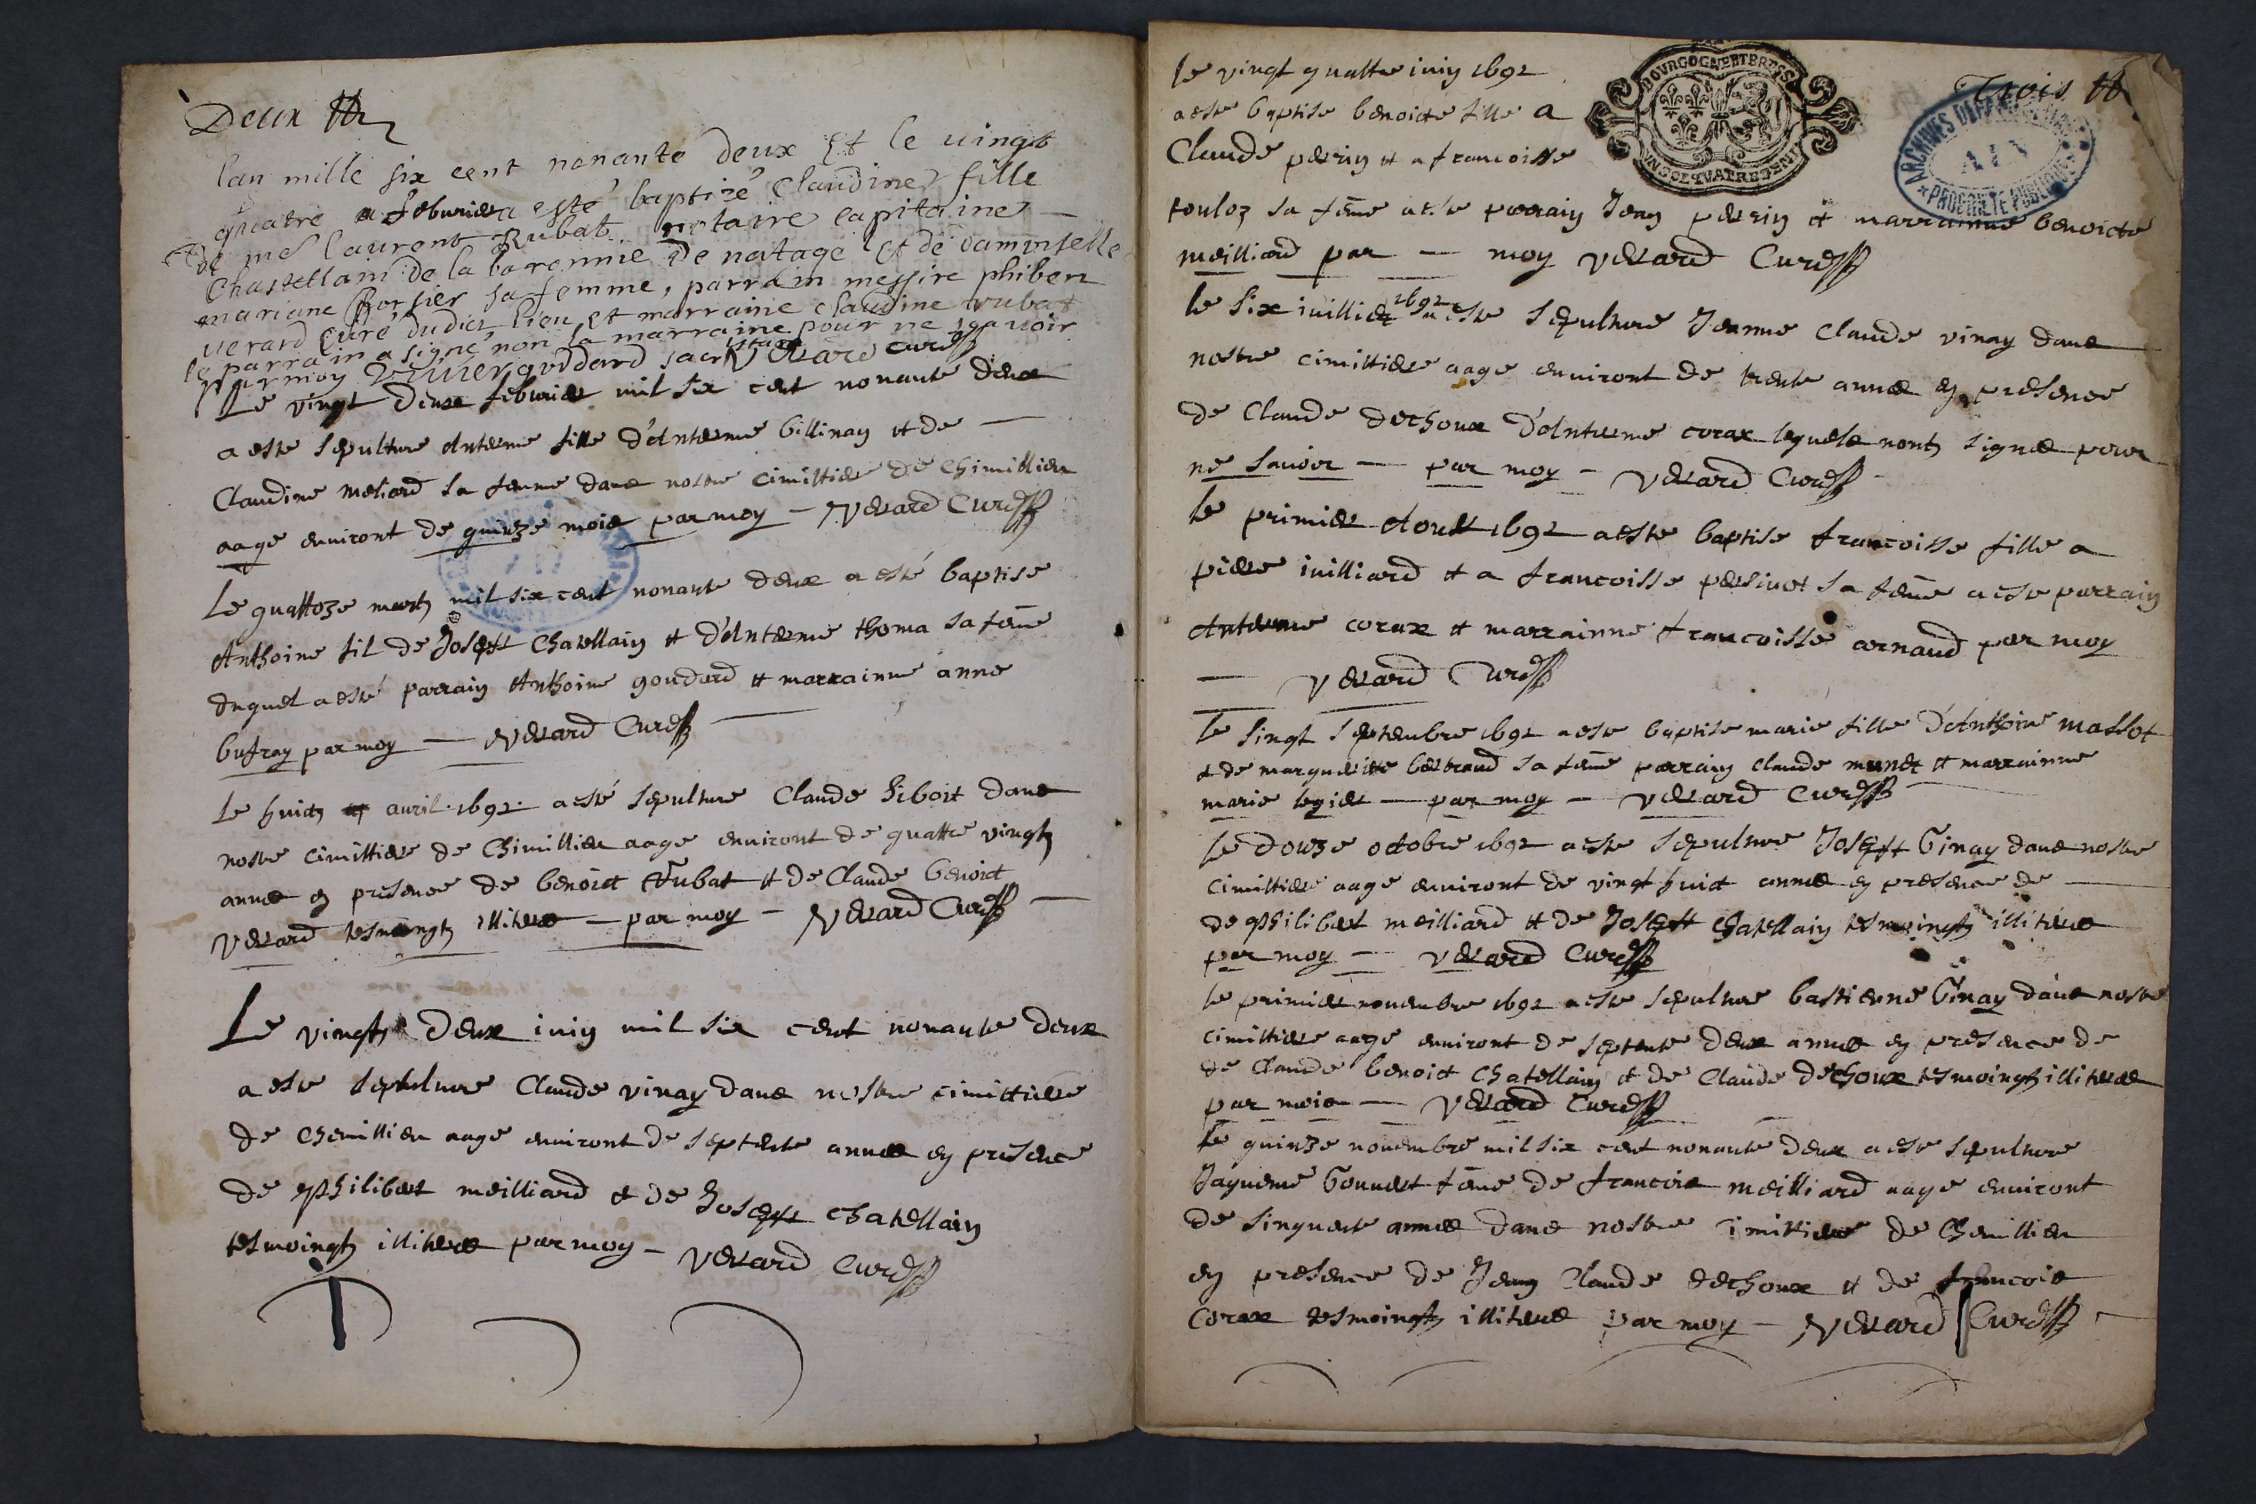 Deux
lan mille six cent nonante deux Et le uingt
quatre feburier a esté baptizé Claudine fille
de me laurent Rubat notaire capitaine
Chastellain de la baronnie De et de damoiselle
mariane sa femme, parrain messire phibert
uerard Curé dudict lieu et marraine claudine rubat
le parrain a signé non la marraine pour ne scauoir
par moy goddard Verard curé
Le vingt deux feburier mil six cent nonante deux
a este sepulture Anterme fille d'Anterme billinay et de
Claudine meliard sa femme dans nostre cimittiere de Chimillieu
aage enuiront de quinze mois par moy – Verard Curé
Le quattoze mars mil six cent nonante deux a esté baptise
Anthoine fil de Joseph Chatellain et d'Anterme thoma sa feme
duquel a esté parrain Anthoine goudard et marrainne anne
bufray par moy — Verard Curé
Le huict auril 1692 a esté sepulture Claude siboit dans
nostre cimittiere de Chimillieu aage enuiront de quattre vingt
annee en presence de benoict Rubat et de Claude benoict
Verard tesmoingts illiteres – par moy – Verard Curé
Le vingt Deux iuin mil six cent nonante deux
a este sepulture Claude vinay dans nostre cimittiere
de Chemillieu aage enuiront de septente annee en presence
de philibert meilliard et de Joseph chatellain
tesmoingts illiteres par moy – Verard Curé
Trois
BOURGOGNE ET BRESS
VN SOL QVATRE DENI
ARCHIVES DEPARTEMENTALES
AIN
PROPRIETE PUBLIQUE
le vingt quattre iuin 1692
a este baptise benoicte fille a
Claude perrin et a francoisse
touloz sa feme a este parrain Jean perrin et marrainne benoicte
meilliard par — moy Verard Curé
le six iuillier 1692 a este sepulture Jeanne Claude vinay dans
nostre cimittiere aage enuiront de trente annee en presence
de Claude dechoux d'Anterme corax lequels nont signee pour
ne sauoir — par moy – Verard Curé
le primier Aout 1692 a este baptise francoisse fille a
piere iuilliard et a francoisse persiuet sa feme a este parrain
Anterme corax et marrainne francoisse arnaud par moy
— Verard Curé
le singt septembre 1692 a este baptise marie fille d'Anthoine massot
et de marguerite bertrand sa feme parrain claude munet et marrainne
marie legier — par moy – Verard Curé
le douze octobre 1692 a este sepulture Joseph Vinay dans nostre
cimittiere aage enuiront de vingt huict annee en presence de
de philibert meilliard et de Joseph Chatellain tesmoingts illiteres
par moy — Verard Curé
le primier nouembre 1692 a este sepulture bastienne Vinay dans nostre
cimittiere aage enuiront de septente deux annee en presence de
de Claude benoict Chatellain et de Claude dechoux tesmoingts illiteres
par moie — Verard Curé
Le quinze nouembre mil six cent nonante deux a este sepulture
Jaqueme feme de francois meilliard aage enuiront
de sinquente annee dans nostre imittiere de Chemillieu
en presence de Jean Claude dechoux et de francois
Corax tesmoingts illiteres par moy – Verard Curé